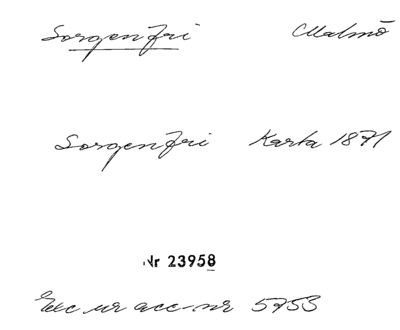 Sorgenfri Malmö
Sorgenfri Karta 1871
Nr 23958
Exc ur acc-nr 5753